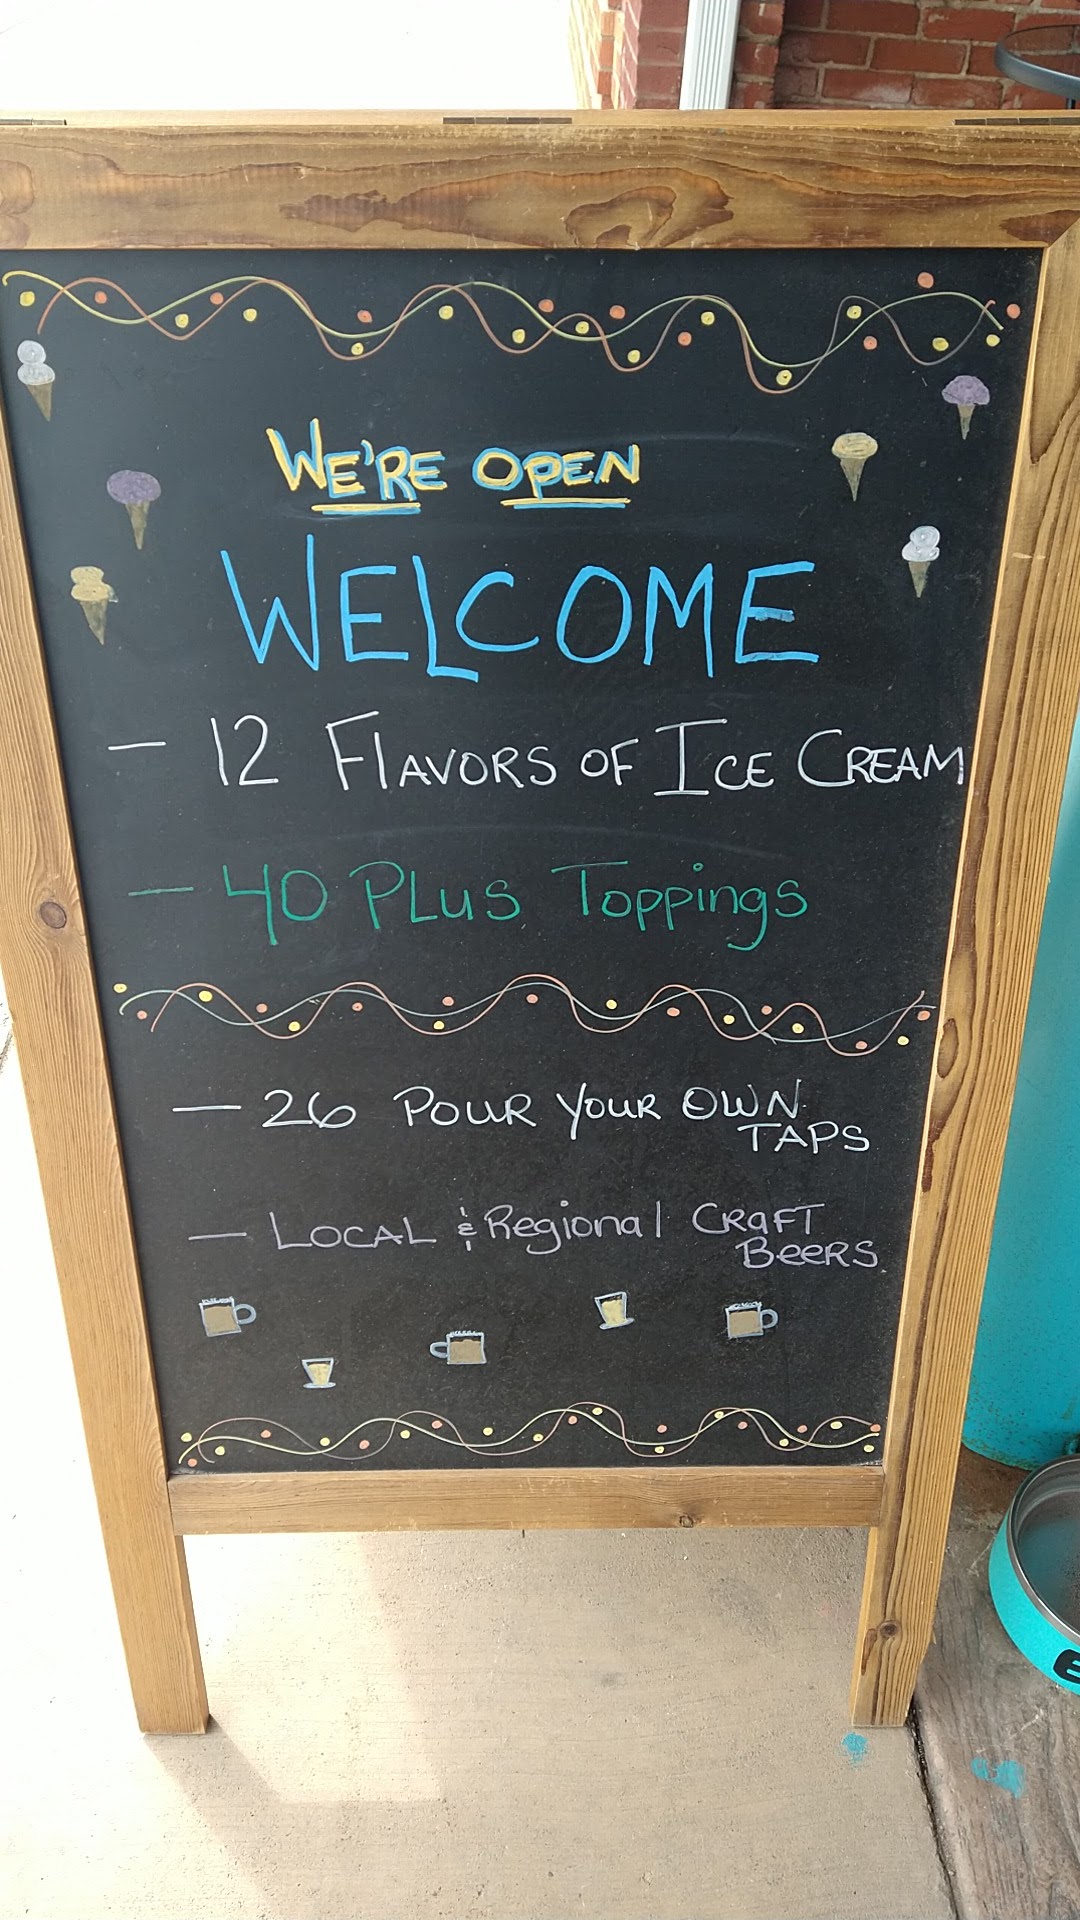 WE'RE OPEN
WELCOME
- 12 FlAVORS OF ICE CREAM
- 40 PLUS Toppings
- 26 POUR YOUR OWN
TAPS
- LOCAL & Regional CRaFT
BeeRS